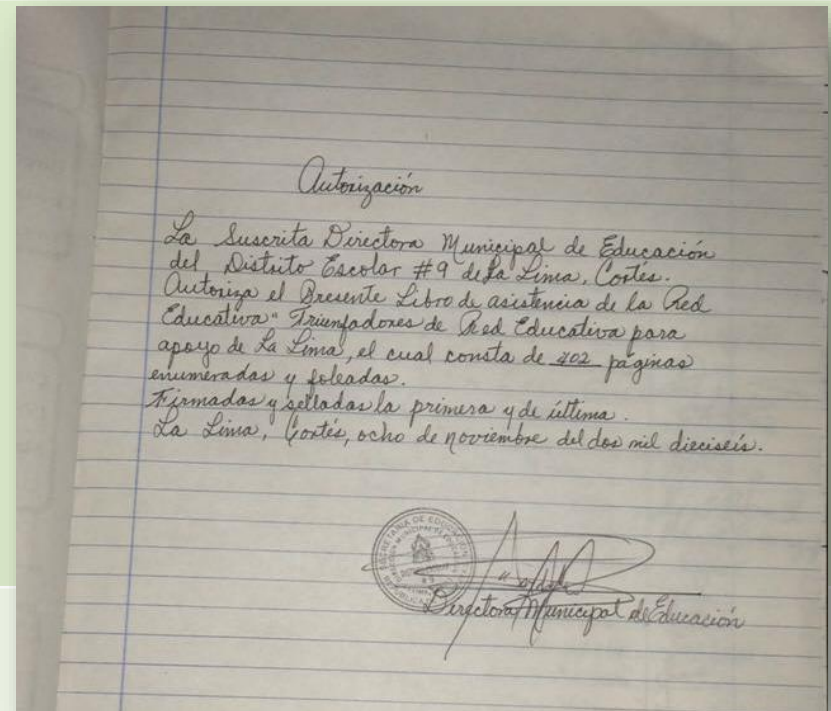 Autorización
La Suscrita Directora Municipal de Educación
del Distrito Escolar #9 de La Lima, Cortés.
Autoriza el Presente Libro de asistencia de la Red
Educativa "Triunfadores de Red Educativa para
apoyo de La Lima, el cual consta de páginas
enumeradas y foleadas.
Firmadas y selladas la primera y de última.
La Lima, Cortés, ocho de noviembre del dos mil dieciseis.
Directora Municipal de Educación